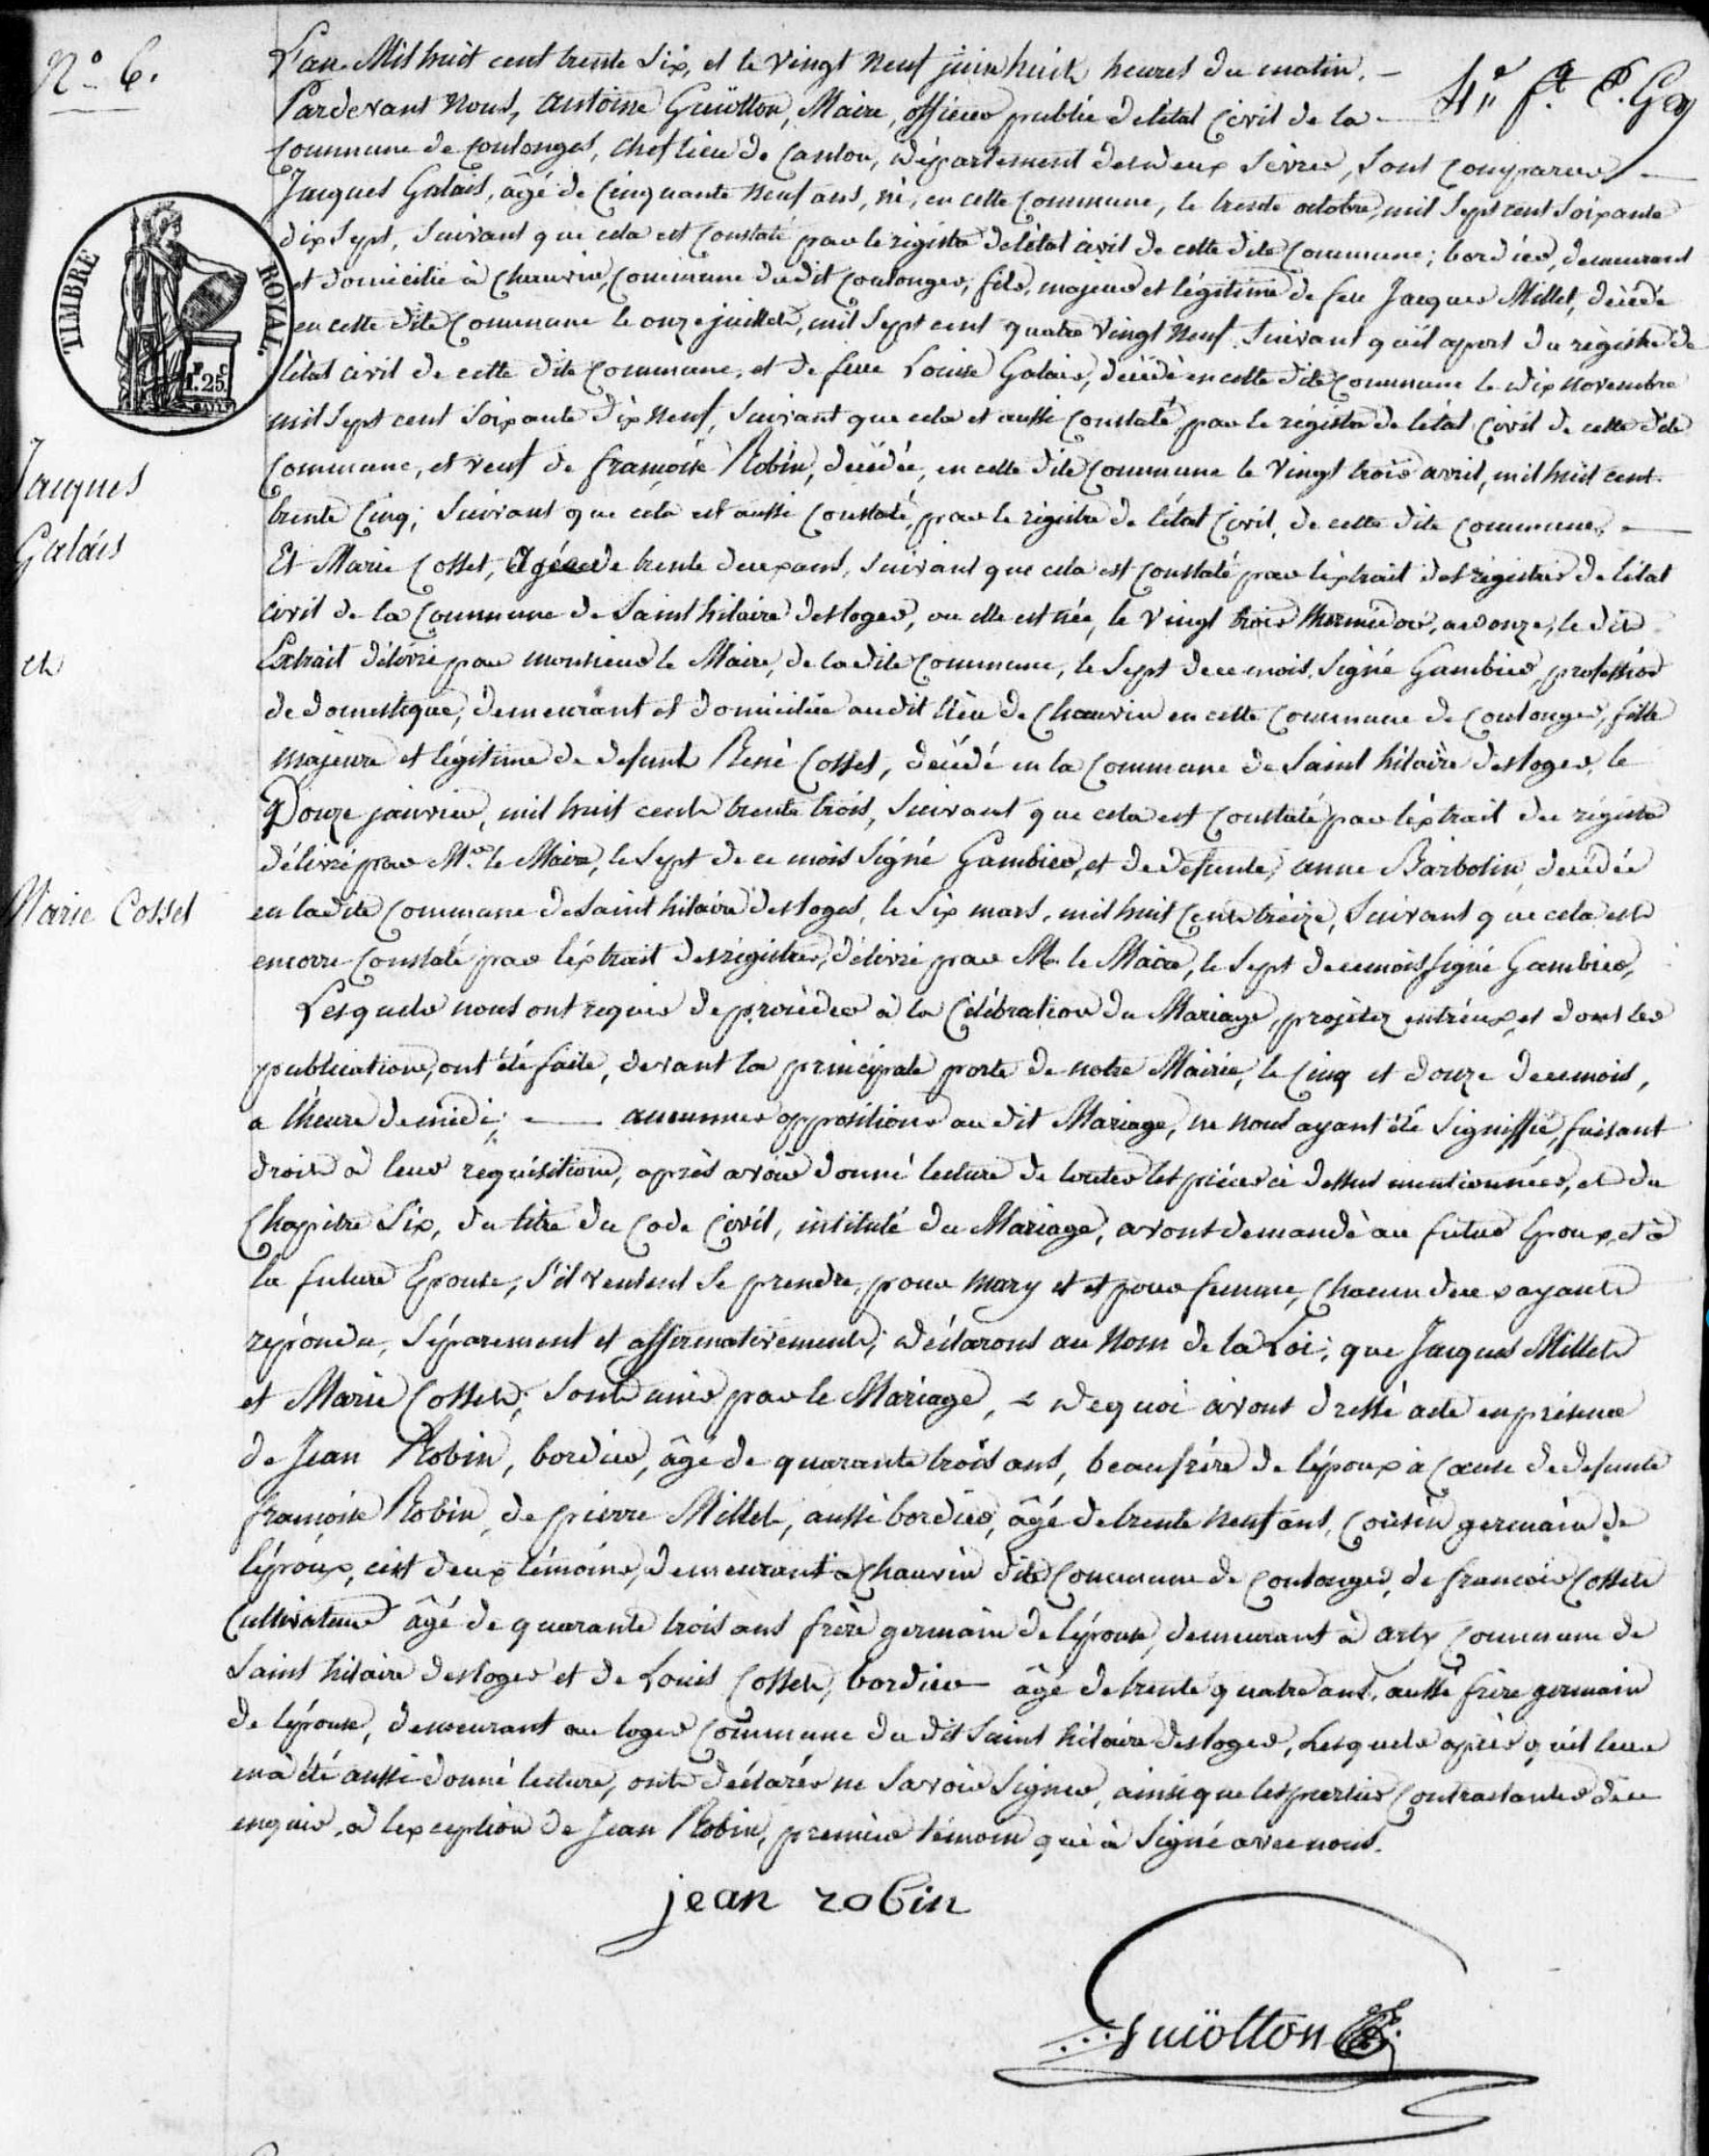 N.o 6.
L'an Mil huit cent trente Six, et le Vingt Neuf juin huit heures du matin. —
4e ft
Pardevant Nous, antoine Guiötton, Maire, officier public de létat Civil de la —
Commune de Coulonges, Chef lieu de Canton, département des deux Sèvres, Sont Comparus —
Jacques Galais, âgé de Cinquante Neuf ans, né, en cette Commune, le trente octobre, mil Sept cent Soixante
dix Sept, Suivant que cela est Constaté par le registre de létat civil de cette dite Commune; bordier, demeurant
et domicilié à Chauvin, Commune du dit Coulonges, fils, majeur et légitime de feu Jacques Millet, décédé
en cette dite Commune le onze juillet, mil Sept cent quatre Vingt Neuf Suivant qu'il apert du régistre de
l'état civil de cette dite Commune, et de feue Louise Galais, décédé en cette dite Commune le dix novembre
mil Sept cent Soixante Dix Neuf, Suivant que cela et aussi Constaté, par le régistre de létat Civil de cette dite
Commune, et veuf de françoise Robin, décédée, en cette dite Commune le Vingt trois avril, mil huit cent
trente Cinq; Suivant que cela est aussi Constaté, par le régistre de létat Civil, de cette dite Commune. —
Et Marie Cosset, Agée de trente deux ans, Suivant que cela est Constaté par léxtrait des régistres de létat
civil de la Commune de Saint hilaire des loges, ou elle est née, le Vingt trois thermidor, an onze, le dit
Extrait délivré par monsieur le Maire, de la dite Commune, le Sept de ce mois, Signé Gambier, profession
de domestique, demeurant et domiciliée au dit lieu de Chauvin en cette Commune de Coulonges, fille
majeure et légitime de defunt René Cosset, décédé en la Commune de Saint hilaire des loges, le
Douze janvier, mil huit cent trente trois, Suivant que cela est Constaté par léxtrait du régistre
délivré par Mr. le Maire, le Sept de ce mois Signé Gambier, et de defunte, anne Barbotin, décédée
en la dite Commune de Saint hilaire des loges, le Six mars, mil huit Cent treize, Suivant que cela est
encorre Constaté par léxtrait des régistres, délivré par M. le Maire, le Sept de ce mois Signé Gambier,
Lesquels nous ont requis de procéder à la Célébration du Mariage, projetez entréux, et dont les
publications, ont été faite, devant la principale porte de notre Mairie, le Cinq et douze de ce mois,
a l'heure de midi; — aucunnes oppositions au dit Mariage, ne nous ayant été Signiffié, faisant
droit à leur requisitions, après avoir donné lecture de toutes les pièces ci dessus mentionnées, et du
Chapitre Six, du titre du Code Civil, intitulé du Mariage, avons demandé au futur Epoux, et à
la future Epouse, S'il veulent Se prendre, pour mary et et pour femme, Chacun deux ayants
repondu, Séparement et affirmativement; déclarons au Nom de la Loi; que Jacques Millet
et Marie Cosset; Sont unis par le Mariage, — de quoi avons dressé acte en présence
de Jean Robin, bordier, âgé de quarante trois ans, beaufrère de l'époux à Cause de defunte
françoise Robin, de pierre Millet, aussi bordier, âgé de trente Neuf ans, Cousin germain de
lépoux, cest deux témoins, demeurant à Chauvin dite Commune de Coulonges, de francois Cosset
Cultivateur âgé de quarante trois ans frère germain de l'épouse, demeurant à arty Commune de
Saint hilaire des loges et de Louis Cosset, bordier — âgé de trente quatre ans, aussi frère germain
de lépouse, demeurant au loges Commune du dit Saint hilaire des loges, Lesquels après qu'il leur
en à été aussi donné lecture, ont déclarés ne Savoir Signer, ainsi que les parties Contractantes de ce
enquis, à lexception de Jean Robin, premier témoin qui à Signé avec nous.
TIMBRE ROYAL.
1.25
Jacques
Galais
et
Marie Cosset
jean robin
Guiötton